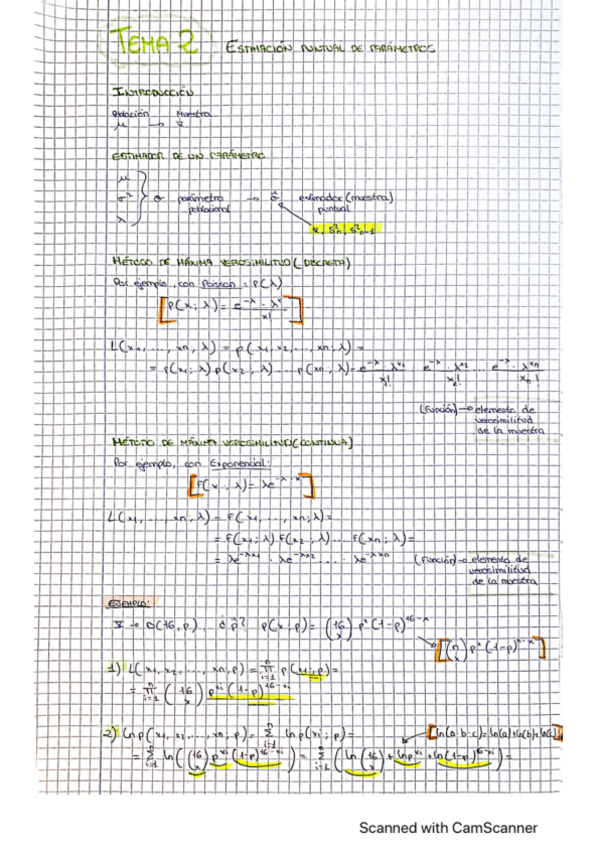 TEMA 2 ESTIMACIÓN PUNTUAL DE PARÁMETROS
INTRODUCCIÓN
Población Muestra
μ → x̄
ESTIMADOR DE UN PARÁMETRO
μ
σ² } θ parámetro poblacional → θ̂ estimador (muestra) puntual
λ
x̄, S²n, S²n-1
MÉTODO DE MÁXIMA VEROSIMILITUD (DISCRETA)
Por ejemplo, con Poisson: P(λ)
[P(x; λ) = e^-λ · λ^x / x!]
L(x1, ..., xn, λ) = p(x1, x2, ..., xn; λ) =
= p(x1; λ) p(x2; λ) ... p(xn; λ) = e^-λ · λ^x1 / x1! · e^-λ · λ^x2 / x2! ... e^-λ · λ^xn / xn!
(función) → elemento de
verosimilitud
de la muestra
MÉTODO DE MÁXIMA VEROSIMILITUD (CONTINUA)
Por ejemplo, con Exponencial:
[f(x, λ) = λe^-λ·x]
L(x1, ..., xn, λ) = f(x1, ..., xn; λ) =
= f(x1; λ) f(x2; λ) ... f(xn; λ) =
= λe^-λx1 · λe^-λx2 ... λe^-λxn
(función) → elemento de
verosimilitud
de la muestra
EJEMPLO:
p(x; p) = (16 x) p^x (1-p)^16-x
[(n x) p^x (1-p)^n-x]
1) L(x1, x2, ..., xn, p) = ∏ i=1 n p(xi; p) =
= ∏ i=1 n (16 x) p^xi (1-p)^16-xi
2) ln p(x1, x2, ..., xn; p) = Σ i=1 n ln p(xi; p) =
[ln(a·b·c) = ln(a)+ln(b)+ln(c)]
= Σ i=1 n ln((16 x) p^xi (1-p)^16-xi) = Σ i=1 n (ln(16 x) + ln p^xi + ln(1-p)^16-xi) =
Scanned with CamScanner